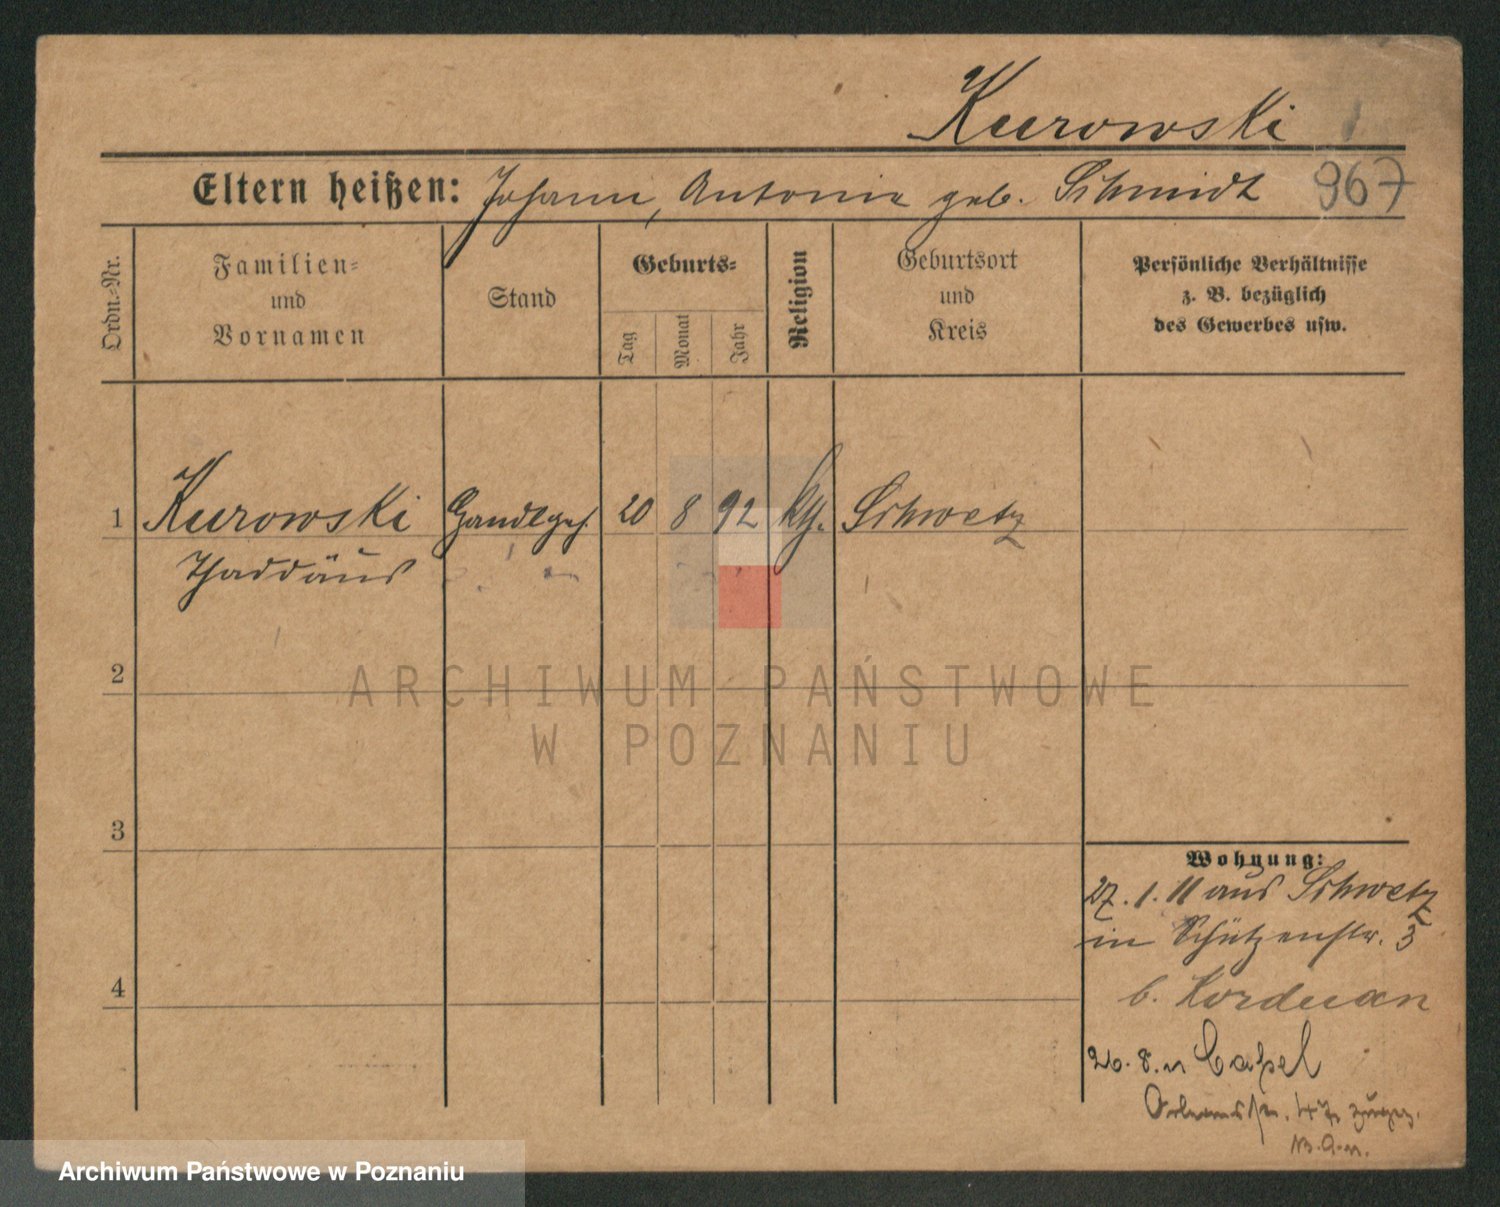 Kurowski
Eltern heißen: Johann, Antonie geb. Schmidt 967
Ordn.-Nr.
Familien-
und
Vornamen
Stand
Geburts-
Tag
Monat
Jahr
Religion
Geburtsort
und
Kreis
Persönliche Verhältnisse
z. B. bezüglich
des Gewerbes usw.
1 Kurowski Handlgeh. 20 8 92 kth. Schwetz
Thaddäus
2
ARCHIWUM PAŃSTWOWE
W POZNANIU
3
4
Wohnung:
27. 1. 11 aus Schwetz
in Schützenstr. 3
b. Korduan
26. 8. 11 Cassel
47
Archiwum Państwowe w Poznaniu